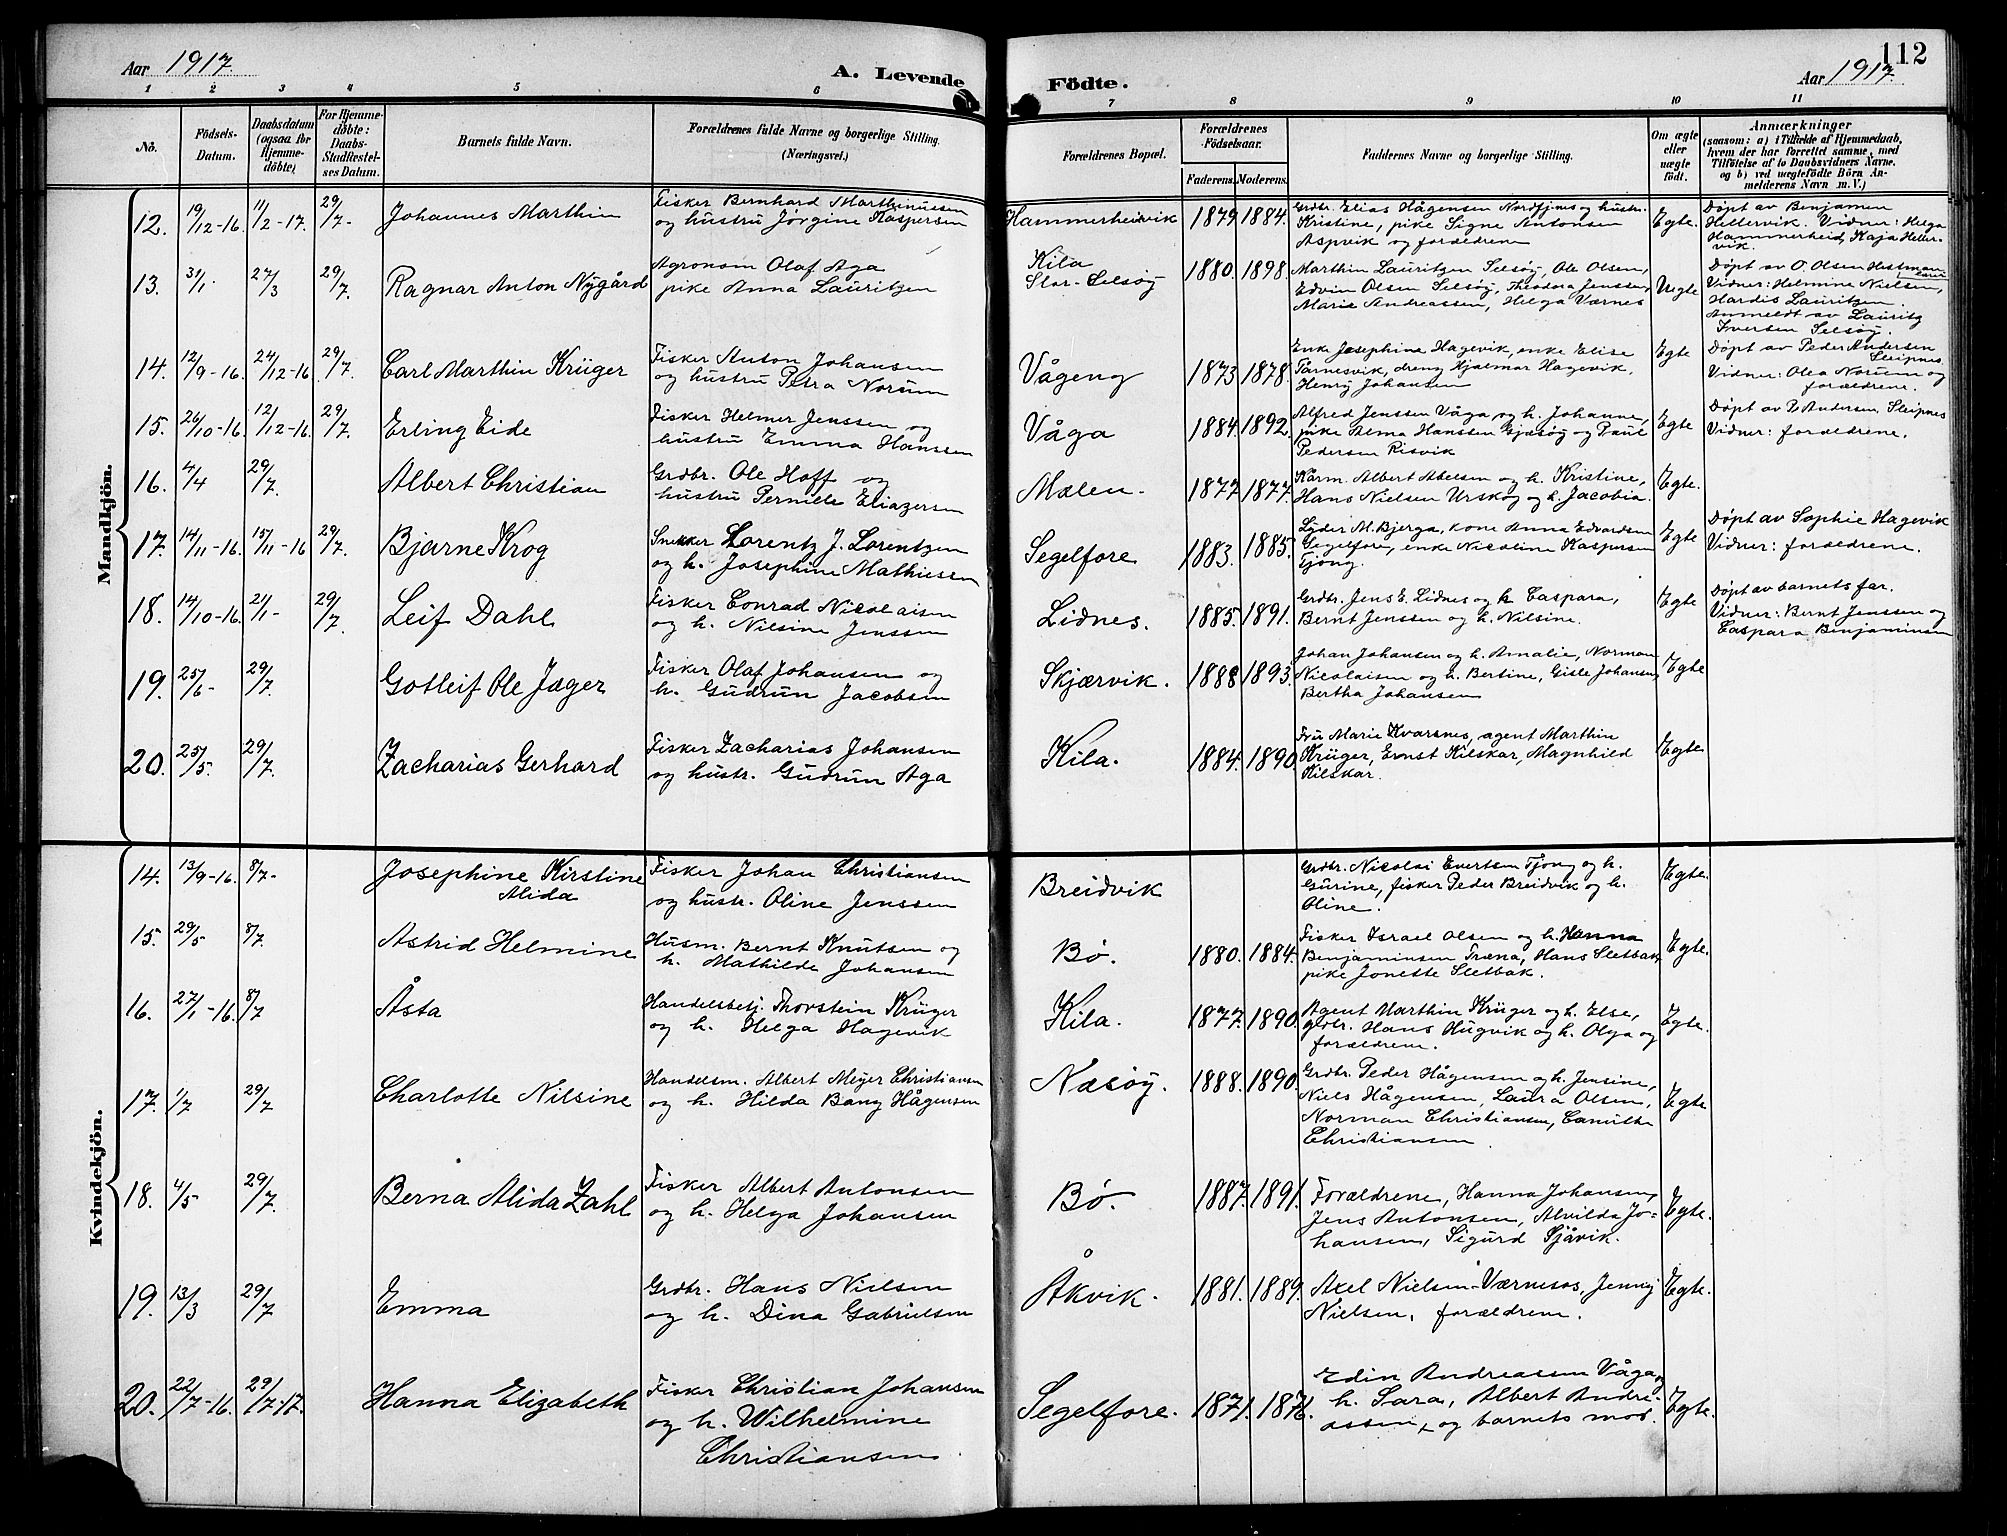 Aar 1917.
A. Levende
Födte.
Aar 1917.
112
1 2 3 4 5 6 7 8 9 10 11
No.
Födsels-
Datum.
Daabsdatum
(ogsaa for
Hjemme-
døbte)
For Hjemme-
døbte:
Daabs-
Stadfæstel-
ses Datum.
Barnets fulde Navn.
Forældrenes fulde Navne og borgerlige Stilling.
(Næringsvei.)
Forældrenes Bopæl.
Forældrenes
Födselsaar.
Faderens. Moderens.
Faddernes Navne og borgerlige Stilling.
Om ægte
eller
uægte
födt.
Anmærkninger
(saasom: a) i Tilfælde af Hjemmedaab,
hvem der har forrettet samme, med
Tilföielse af to Daabsvidners Navne.
og b) ved uægtefödte Börn An-
melderens Navn m. V.)
Mandkjön.
12. 19/12-16. 11/2-17. 29/7- Johannes Marthin
Fisker Bernhard Marthinussen
og hustru Jørgine Kaspersen
Hammerheidvik 1879 1884.
Grdbr. Elias Hågensen Nordfjines og hustr.
Kristine, pike Signe Antonsen
Aspvik og forældrene
Egte.
Døpt av Benjamin
Hellervik. Vidner: Helga
Hammerheid, Kaja Heller-
vik.
13. 31/1. 27/3 29/7. Ragnar Anton Nygård
Agronom Olaf Aga
pike Anna Lauritzen
Kila
Stor-Selsøy 1880. 1898.
Marthin Lauritzen Selsøy, Ole Olsen,
Edvin Olsen Selsøy, Theodora Jenssen,
Marie Andreassen, Helga Værnes
Uegte
Døpt av O. Olsen Hestmann
Vidner: Helmine Nielsen,
Hardis Lauritzen.
Anmeldt av Lauritz
Iversen Selsøy.
14. 12/9-16. 24/12-16 29/7. Carl Marthin Krüger
Fisker Anton Johansen
og hustru Petra Norum
Vågeng 1873 1878.
Enke Josephine Hagevik, enke Elise
Tårnesvik, dreng Hjalmar Hagevik,
Henry Johansen
Egte
Døpt av Peder Andersen
Sleipnes
Vidner: Olea Norum og
forældrene.
15. 26/10-16. 12/12-16. 29/7. Erling Eide
Fisker Helmer Jenssen og
hustru Emma Hansen
Våga 1884. 1892.
Alfred Jenssen Våga og h. Johanne,
pike Alma Hanssen Gjæsøy og Paul
Pedersen Risvik
Egte
Døpt av P. Andersen Sleipnes
Vidner: forældrene.
16. 4/4 29/7. Albert Christian
Grdbr. Ole Hoff og
hustru Pernele Eliazersen
Mælen. 1877 1877.
Kårm. Albert Abelsen og h. Kristine,
Hans Nielsen Urskog og h. Jacobia.
Egte.
17. 14/11-16. 15/11-16 29/7. Bjarne Krog
Snekker Lorentz J. Lorentzen
og h. Josephine Mathiesen
Segelfore 1883. 1885.
Lyder M. Bjerga, kone Anna Edvardsen
Segelfore, enke Nicoline Kaspersen
Tjong.
Egte
Døpt av Sophie Hagevik
Vidner: forældrene.
18. 14/10-16. 21/1- 29/7. Leif Dahl
Fisker Conrad Nicolaisen
og h. Nilsine Jenssen
Lidnes. 1885. 1891.
Grdbr. Jens E. Lidnes og h. Caspara,
Bernt Jenssen og h. Nilsine.
Egte
Døpt av barnets far.
Vidner: Bernt Jenssen og
Caspara Benjaminsen
19. 25/6- 29/7. Gotleif Ole Jæger
Fisker Olaf Johansen og
h. Gudrun Jacobsen
Skjærvik. 1888 1893.
Johan Johansen og h. Amalie, Norman
Nicolaisen og h. Bertine, Gisle Johansen,
Bertha Johansen
Egte
20. 25/5. 29/7. Zacharias Gerhard
Fisker Zacharias Johansen
og hustr. Gudrun Aga
Kila. 1884. 1890.
Fru Marie Kvarsnes, agent Marthin
Krüger, Ernst Kilskar, Magnhild
Kilskar.
Egte
Kvindekjön.
14. 13/9-16. 8/7- Josephine Kirstine
Alida
Fisker Johan Christiansen
og hustr. Oline Jenssen
Breidvik
Grdbr. Nicolai Evertsen Tjong og h.
Gurine, fisker Peder Breidvik og h.
Oline.
Egte.
15. 29/5 8/7. Astrid Helmine
Husm. Bernt Knutsen og
h. Mathilde Johansen
Bø. 1880. 1884.
Fisker Israel Olsen og h. Hanna
Benjaminsen Træna, Hans Sletbak,
pike Jonette Sletbak.
Egte.
16. 27/1-16. 8/7 Åsta
Handelsbetj. Thorstein Krüger
og h. Helga Hagevik
Kila. 1877. 1890.
Agent Marthin Krüger og h. Else,
grdbr. Hans Hugvik og h. Olga og
forældrene.
Egte.
17. 1/7 29/7 Charlotte Nilsine
Handelsm. Albert Meyer Christiansen
og h. Hilda Bang Hågensen
Næsøy. 1888. 1890.
Grdbr. Peder Hågensen og h. Jensine,
Niels Hågensen, Laura Olsen,
Norman Christiansen, Canutte
Christiansen.
Egte.
18. 4/5 29/7. Berna Alida Zahl
Fisker Albert Antonsen
og h. Helga Johansen
Bø. 1887. 1891.
Forældrene, Hanna Johansen,
Jens Antonsen, Alvilda Jo-
hansen, Sigurd Sjåvik.
Egte.
19. 13/3 29/7 Emma
Grdbr. Hans Nielsen
og h. Dina Gabrielsen
Åkvik. 1881. 1889.
Axel Nielsen Værnesos, Jenny
Nielsen, forældrene.
Egte.
20. 22/7-16. 29/7-17. Hanna Elizabeth
Fisker Christian Johansen
og h. Wilhelmine
Christiansen.
Segelfore. 1871. 1876.
Edin Andreassen Våga,
h. Sara, Albert Andre-
assen, og barnets mor.
Egte.